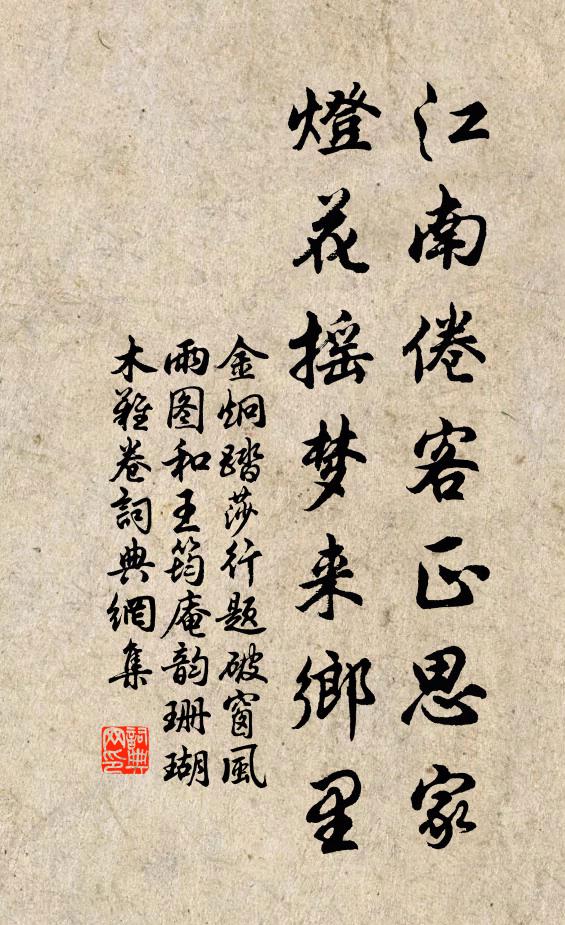 江南倦客正思家
燈花摇梦来鄉里
金炯踏莎行题破窗風
雨图和王筠庵韵珊瑚
木難卷詞典網集
詞典
网印